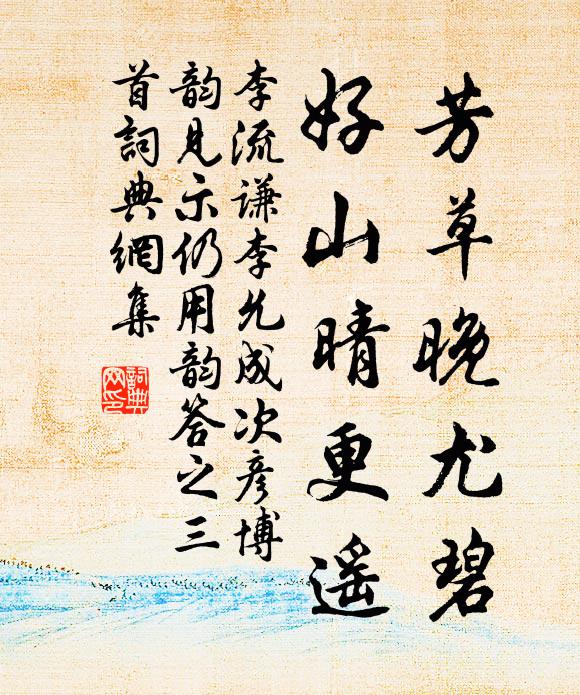 芳草晚尤碧
好山晴更遥
李流谦李允成次彦博
韵见示仍用韵答之三
首詞典網集
詞典
网印